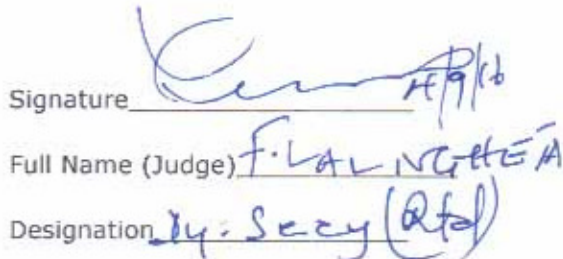 Signature
Full Name (Judge) F. LALNGHETA
Designation Dy. Secy (Rtd)